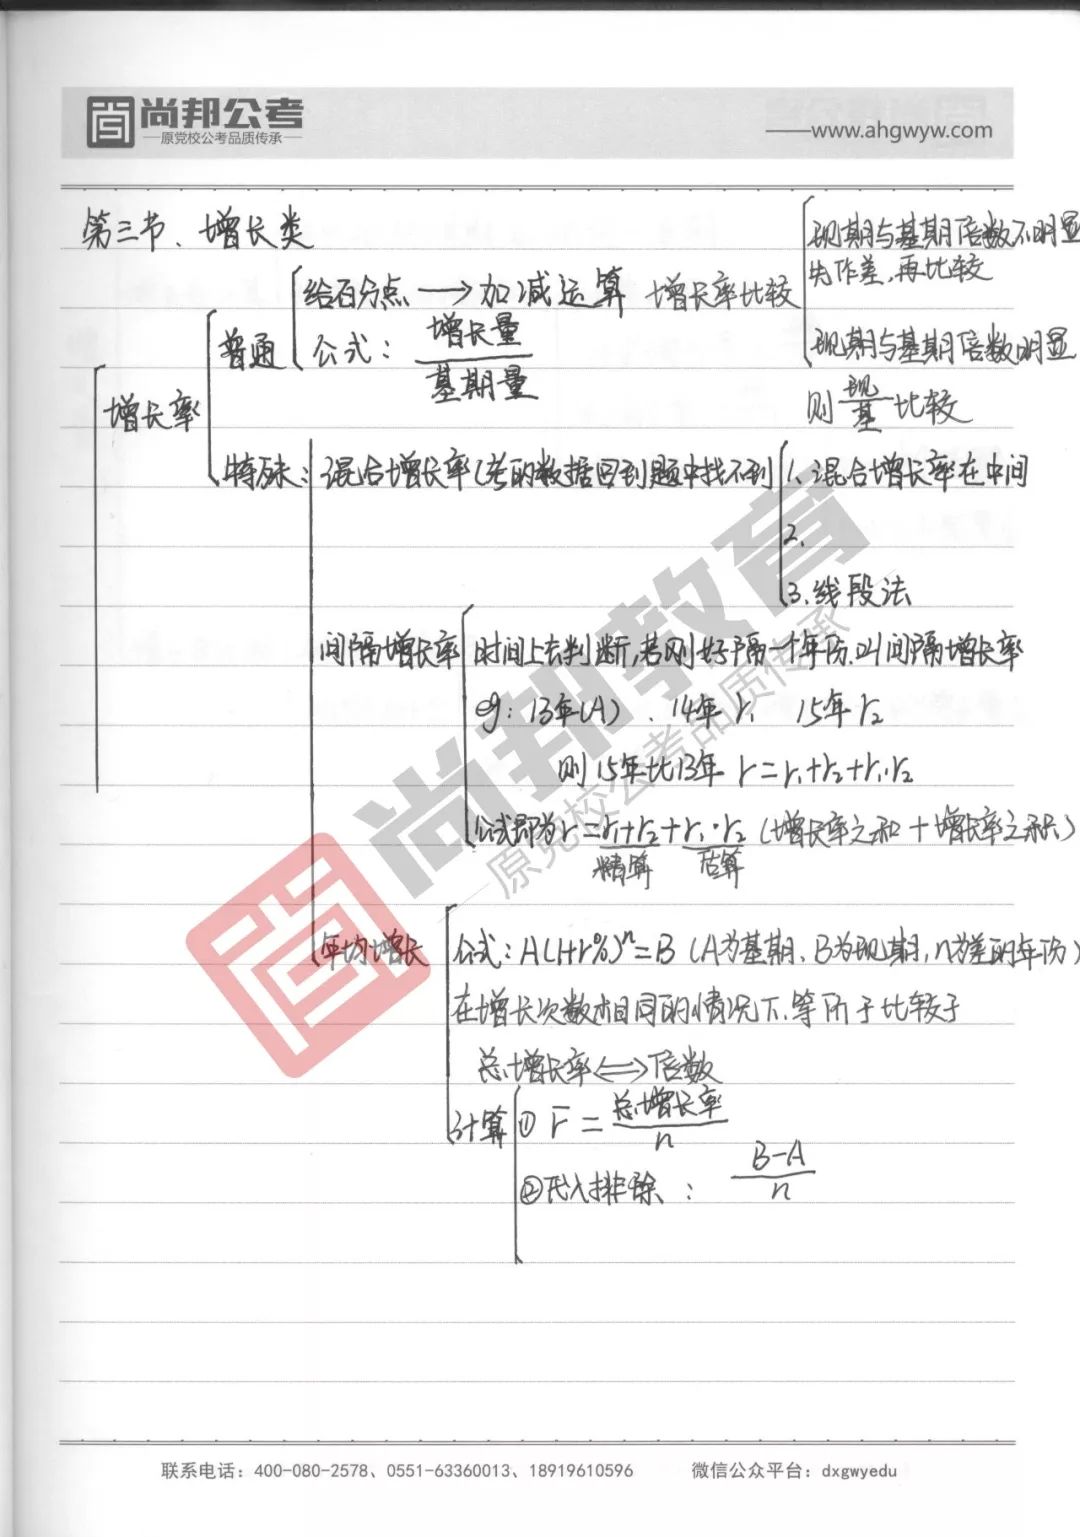 尚邦公考
原党校公考品质传承
——www.ahgwyw.com
第三节、增长类
增长率
普通
给百分点 → 加减运算
公式：增长量/基期量
增长率比较
现期与基期倍数不明显
先作差,再比较
现期与基期倍数明显
则 现/基 比较
特殊：混合增长率(考的数据回到题中找不到
1、混合增长率在中间
2、
3、线段法
间隔增长率
时间上去判断,若刚好隔一个年份.叫间隔增长率
eg：13年(A)、14年 r₁ 15年 r₂
则15年比13年 r=r₁+r₂+r₁·r₂
公式即为r=r₁+r₂+r₁·r₂ (增长率之和+增长率之积)
精算 估算
年均增长
公式：A(1+r%)ⁿ=B (A为基期、B为现期,n为差的年份)
在增长次数相同的情况下.等价于比较于
总增长率⟺倍数
计算
① r̄ = 总增长率/n
②代入排除：(B-A)/n
尚邦教育
原党校公考品质传承
联系电话：400-080-2578、0551-63360013、18919610596 微信公众平台：dxgwyedu